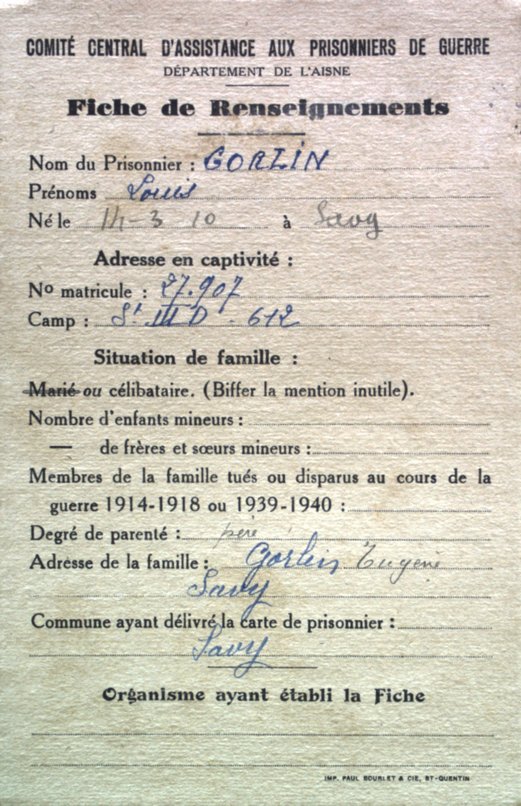 COMITÉ CENTRAL D'ASSISTANCE AUX PRISONNIERS DE GUERRE
DÉPARTEMENT DE L'AISNE
Fiche de Renseignements
Nom du Prisonnier : GORLIN
Prénoms Louis
Né le 14-3 10 à Savy
Adresse en captivité :
No matricule : 27.907
Camp : St III D - 612
Situation de famille :
Marié ou célibataire. (Biffer la mention inutile).
Nombre d'enfants mineurs :
— de frères et sœurs mineurs :
Membres de la famille tués ou disparus au cours de la
guerre 1914-1918 ou 1939-1940 :
Degré de parenté : père
Adresse de la famille : Gorlin Eugène
Savy
Commune ayant délivré la carte de prisonnier :
Savy
Organisme ayant établi la Fiche
IMP. PAUL BOURLET & CIE, ST-QUENTIN